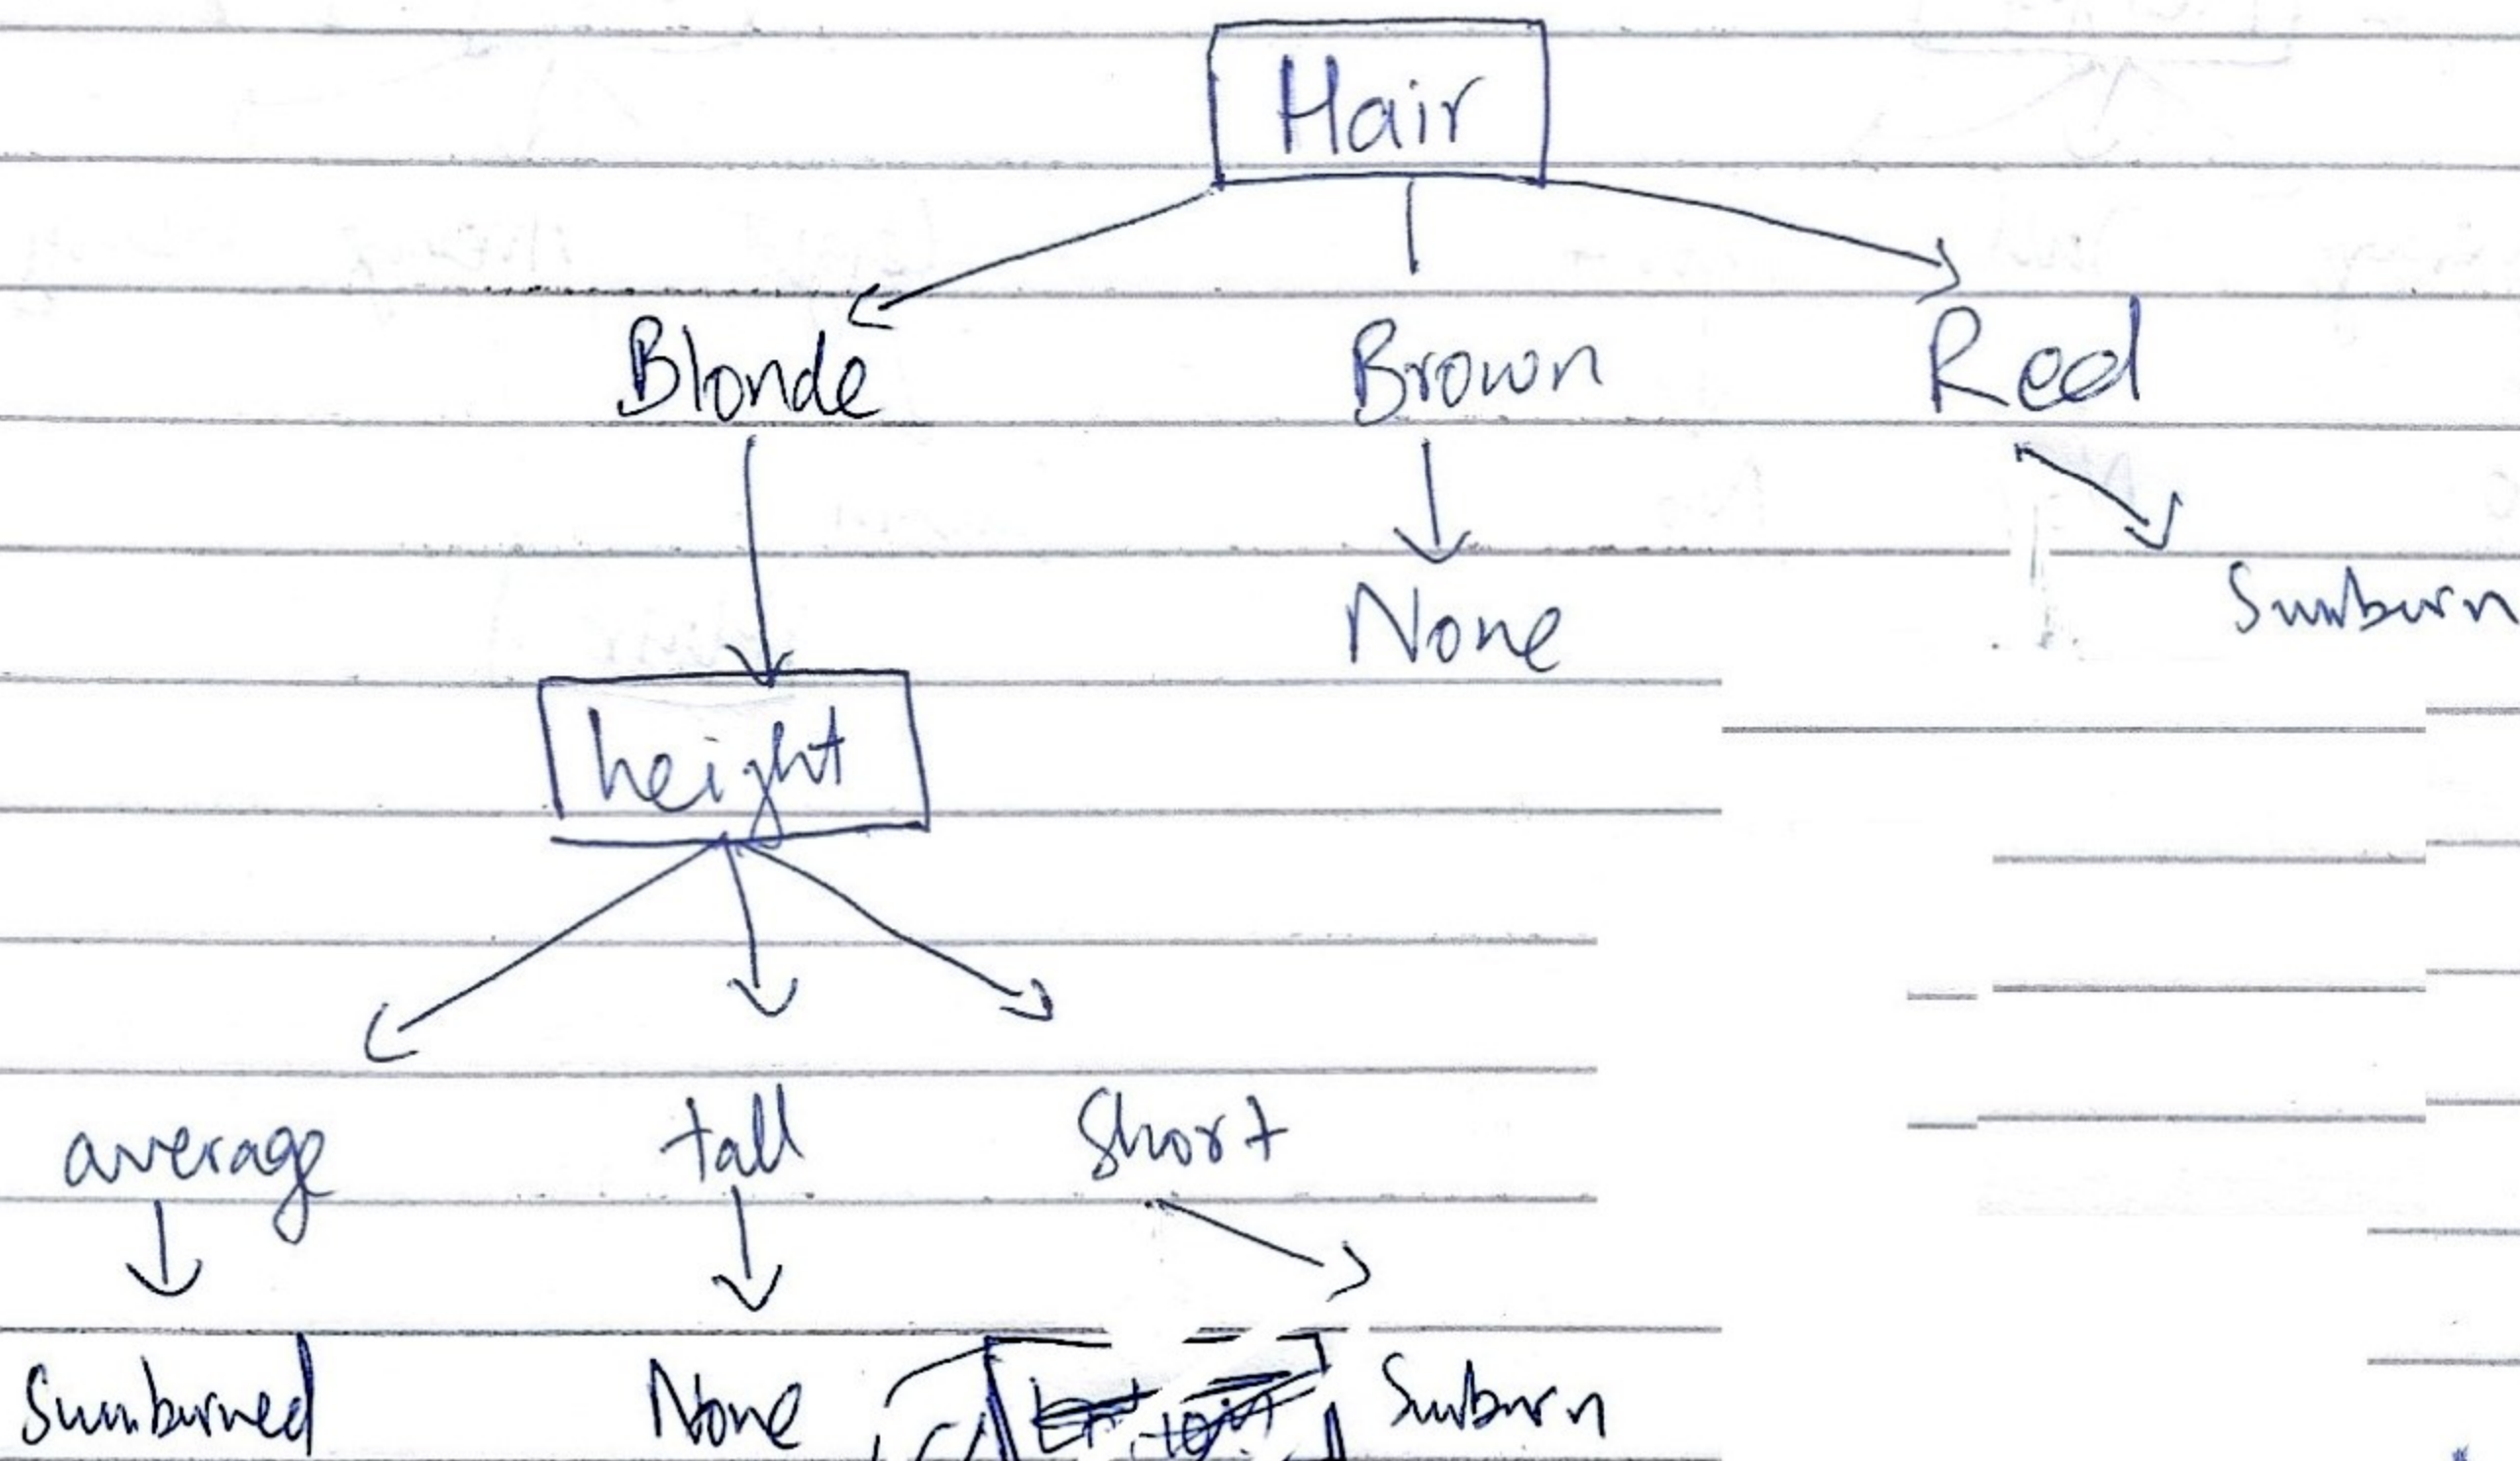 Hair
Blonde Brown Red
None Sunburn
height
average tall short
Sunburned None Sunburn